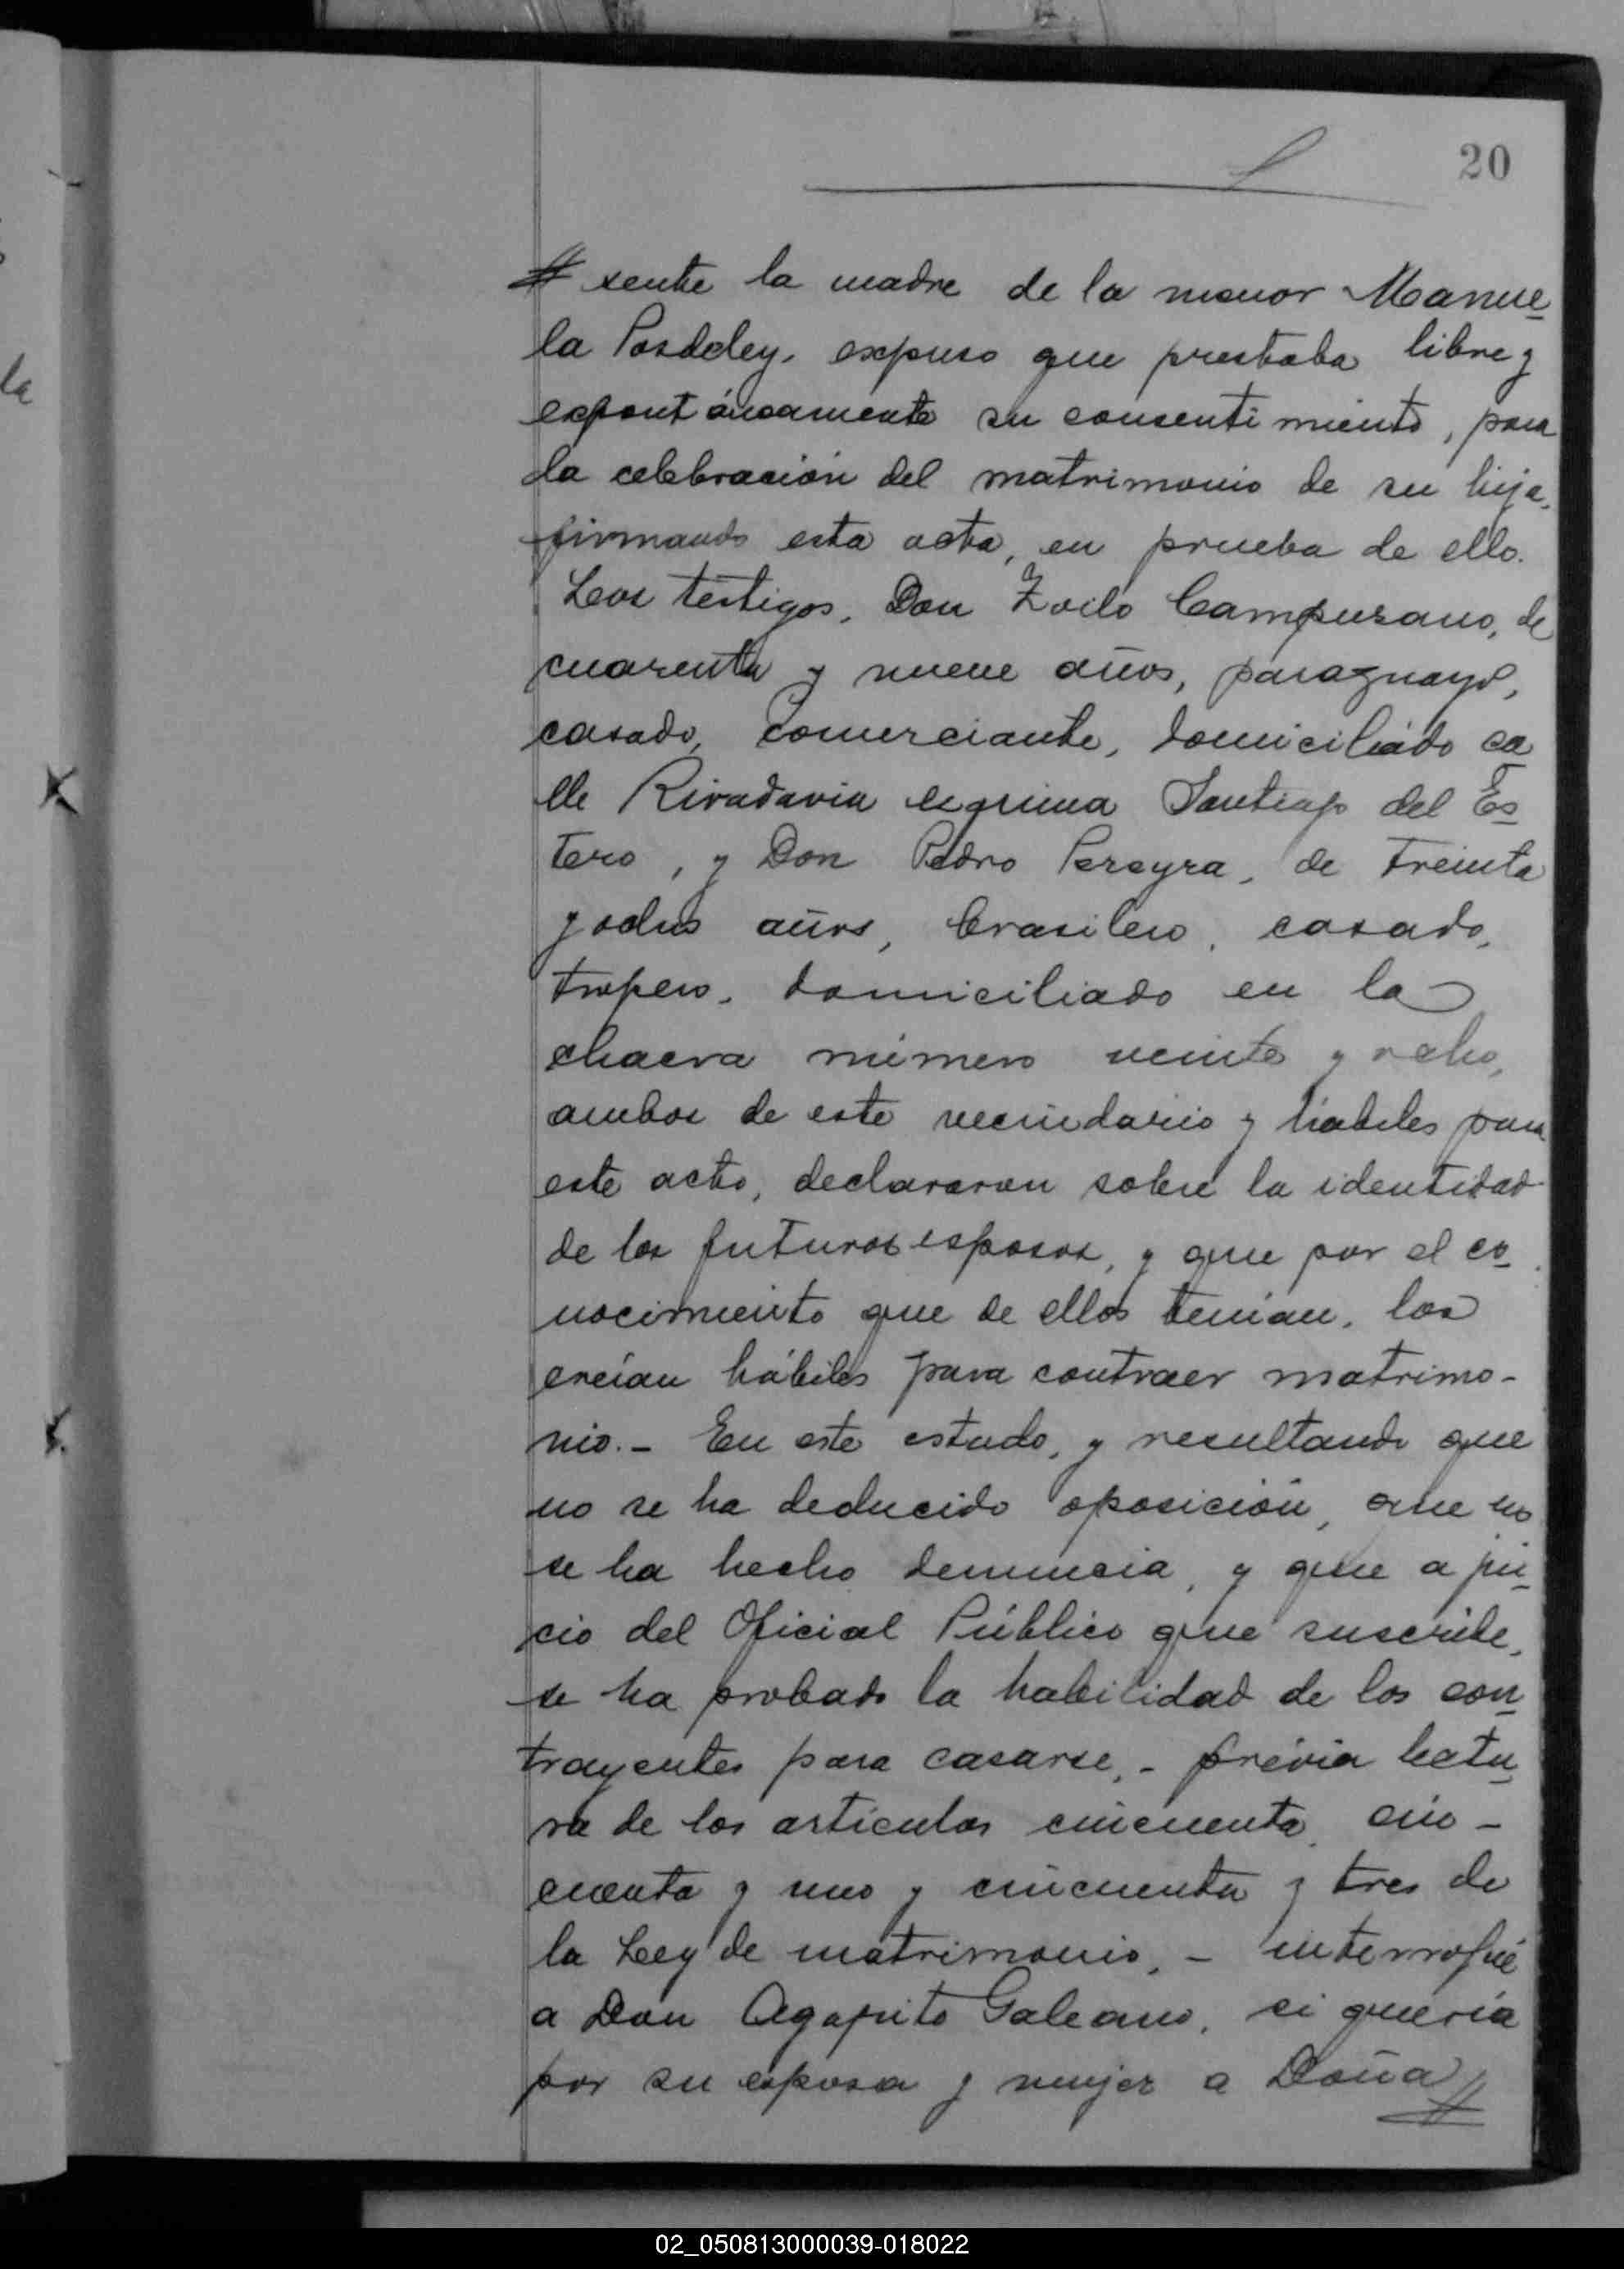 20
sente la madre de la menor Manue
la Posdeley, expuso que prestaba libre y
expontáneamente su consentimiento, para
la celebración del matrimonio de su hija,
firmando esta acta, en prueba de ello.
Los testigos, Don Zoilo Campusano, de
cuarenta y nueve años, paraguayo,
casado, comerciante, domiciliado ca
lle Rivadavia esquina Santiago del Es
tero, y Don Pedro Pereyra, de treinta
y ocho años, brasilero, casado,
tropero, domiciliado en la
chacra número veinte y ocho,
ambos de este vecindario y hábiles para
este acto, declararon sobre la identidad
de los futuros esposos, y que por el co
nocimiento que de ellos tenían, los
creían hábiles para contraer matrimo-
nio.- En este estado, y resultando que
no se ha deducido oposición, que no
se ha hecho denuncia, y que a jui
cio del Oficial Público que suscribe,
se ha probado la habilidad de los con
trayentes para casarse,- prévia lectu
ra de los artículos cincuenta, cin-
cuenta y uno y cincuenta y tres de
la Ley de matrimonio,- interrogué
a Don Agapito Galeano, si quería
por su esposa y mujer a Doña
la
02_050813000039-018022